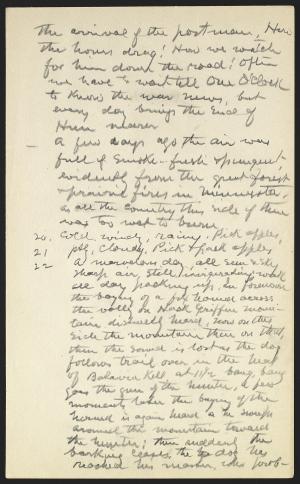 the arrival of the postman. How
the hours drag! How we watch
for him down the road! Often
we have to wait till One O'Clock
to know the war news, but
every day brings the End of
Hun nearer
— A few days ago the air was
full of smoke - fresh & pungent
evidently from the great forest
& prairie fires in Minnesota,
as all the country this side of there
was too wet to burn.
20. Cold, windy, rainy. Pick apples,
21 ptly Cloudy, Pick & pack apples
22 A marvelous day all sun & sky
sharp air, still, invigorating, work
all day packing up. In forenoon
the baying of a fox hound across
the valley on Hack Griffin moun-
tain distinctly heard, now on this
side the mountain then on that,
then the sound is lost as the dog
follows trail over in the head
of Batavia Kill at 11 1/2 bang, bang
goes the gun of the hunter, a few
moments later the baying of the
hound is again heard as he
around the mountain toward
the hunter; then suddenly the
barking ceases, the dog has
reached his master, who prob-